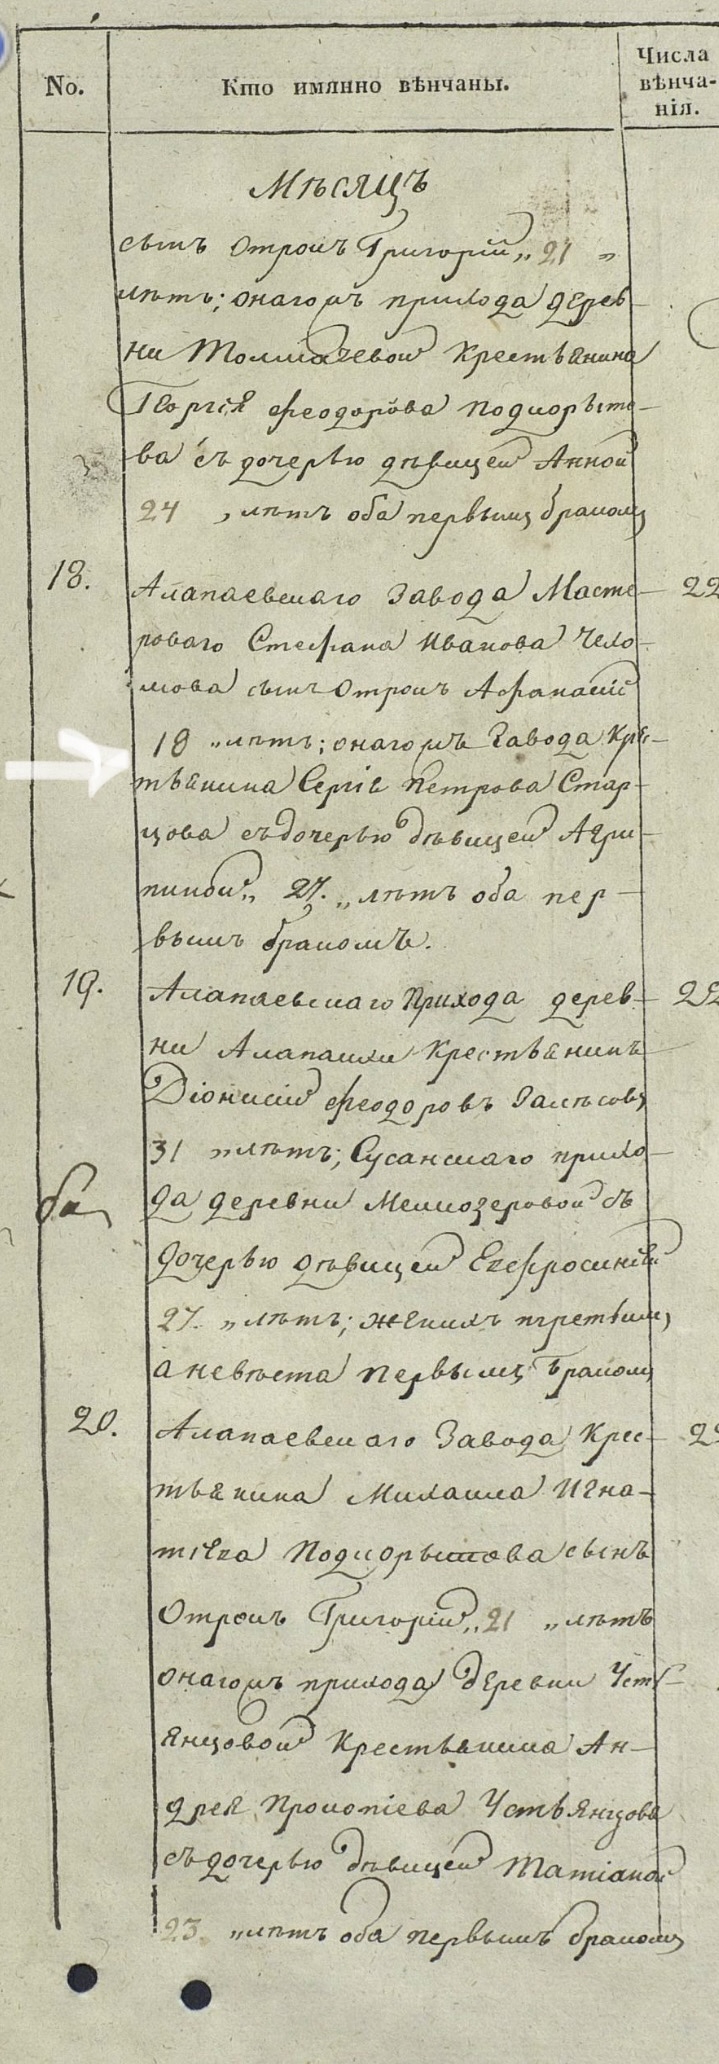 No.
Кто имянно вѣнчаны.
Числа
вѣнча-
нія.
Мѣсяцъ
сынъ Отрокъ Григорій „ 21 „
лѣтъ; онагожъ прихода дерев-
ни Толмачевой крестьянина
Георгія Феодорова Подкорыто-
ва съ дочерью дѣвицей Анной
24 „ лѣтъ оба первымъ бракомъ
18.
Алапаевскаго Завода Масте-
22
роваго Стефана Иванова Чело-
мова сынъ Отрокъ Афанасій
18 „ лѣтъ; онагожъ Завода Крѣс-
тьянина Сергіе Петрова Стар-
цова съ дочерью дѣвицей Агри-
пиной „ 27. „ лѣтъ оба пер-
вымъ бракомъ.
19.
Алапаевскаго Прихода дерев-
22
ни Алапаихи Крестьянинъ
Діонисій Феодоровъ Залѣсовъ
31 „ лѣтъ; Сусанскаго прихо-
да деревни Мелкозеровой съ
дочерью дѣвицей Евфросиніей
27. „ лѣтъ; женихъ третьимъ,
а невѣста первымъ бракомъ
20.
Алапаевскаго Завода Крес-
тьянина Михаила Игна-
тіева Подкорытова сынъ
Отрокъ Григорій „ 21 „ лѣтъ
онагожъ прихода деревни Усть-
янцовой Крестьянина Ан-
дрея Прокопіева Устьянцова
съ дочерью дѣвицей Татіаной
23. „ лѣтъ оба первымъ бракомъ